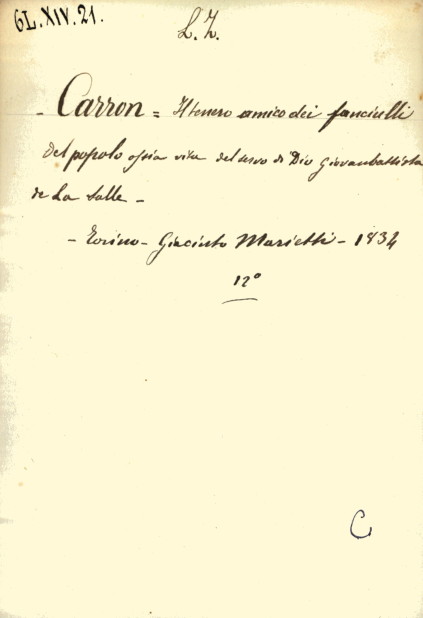 6L.XIV.21.
L. Z.
- Carron = Il tenero amico dei fanciulli
del popolo ossia vita del servo di Dio Giovanbattista
de La Salle -
- Torino - Giacinto Marietti - 1834
12°
C